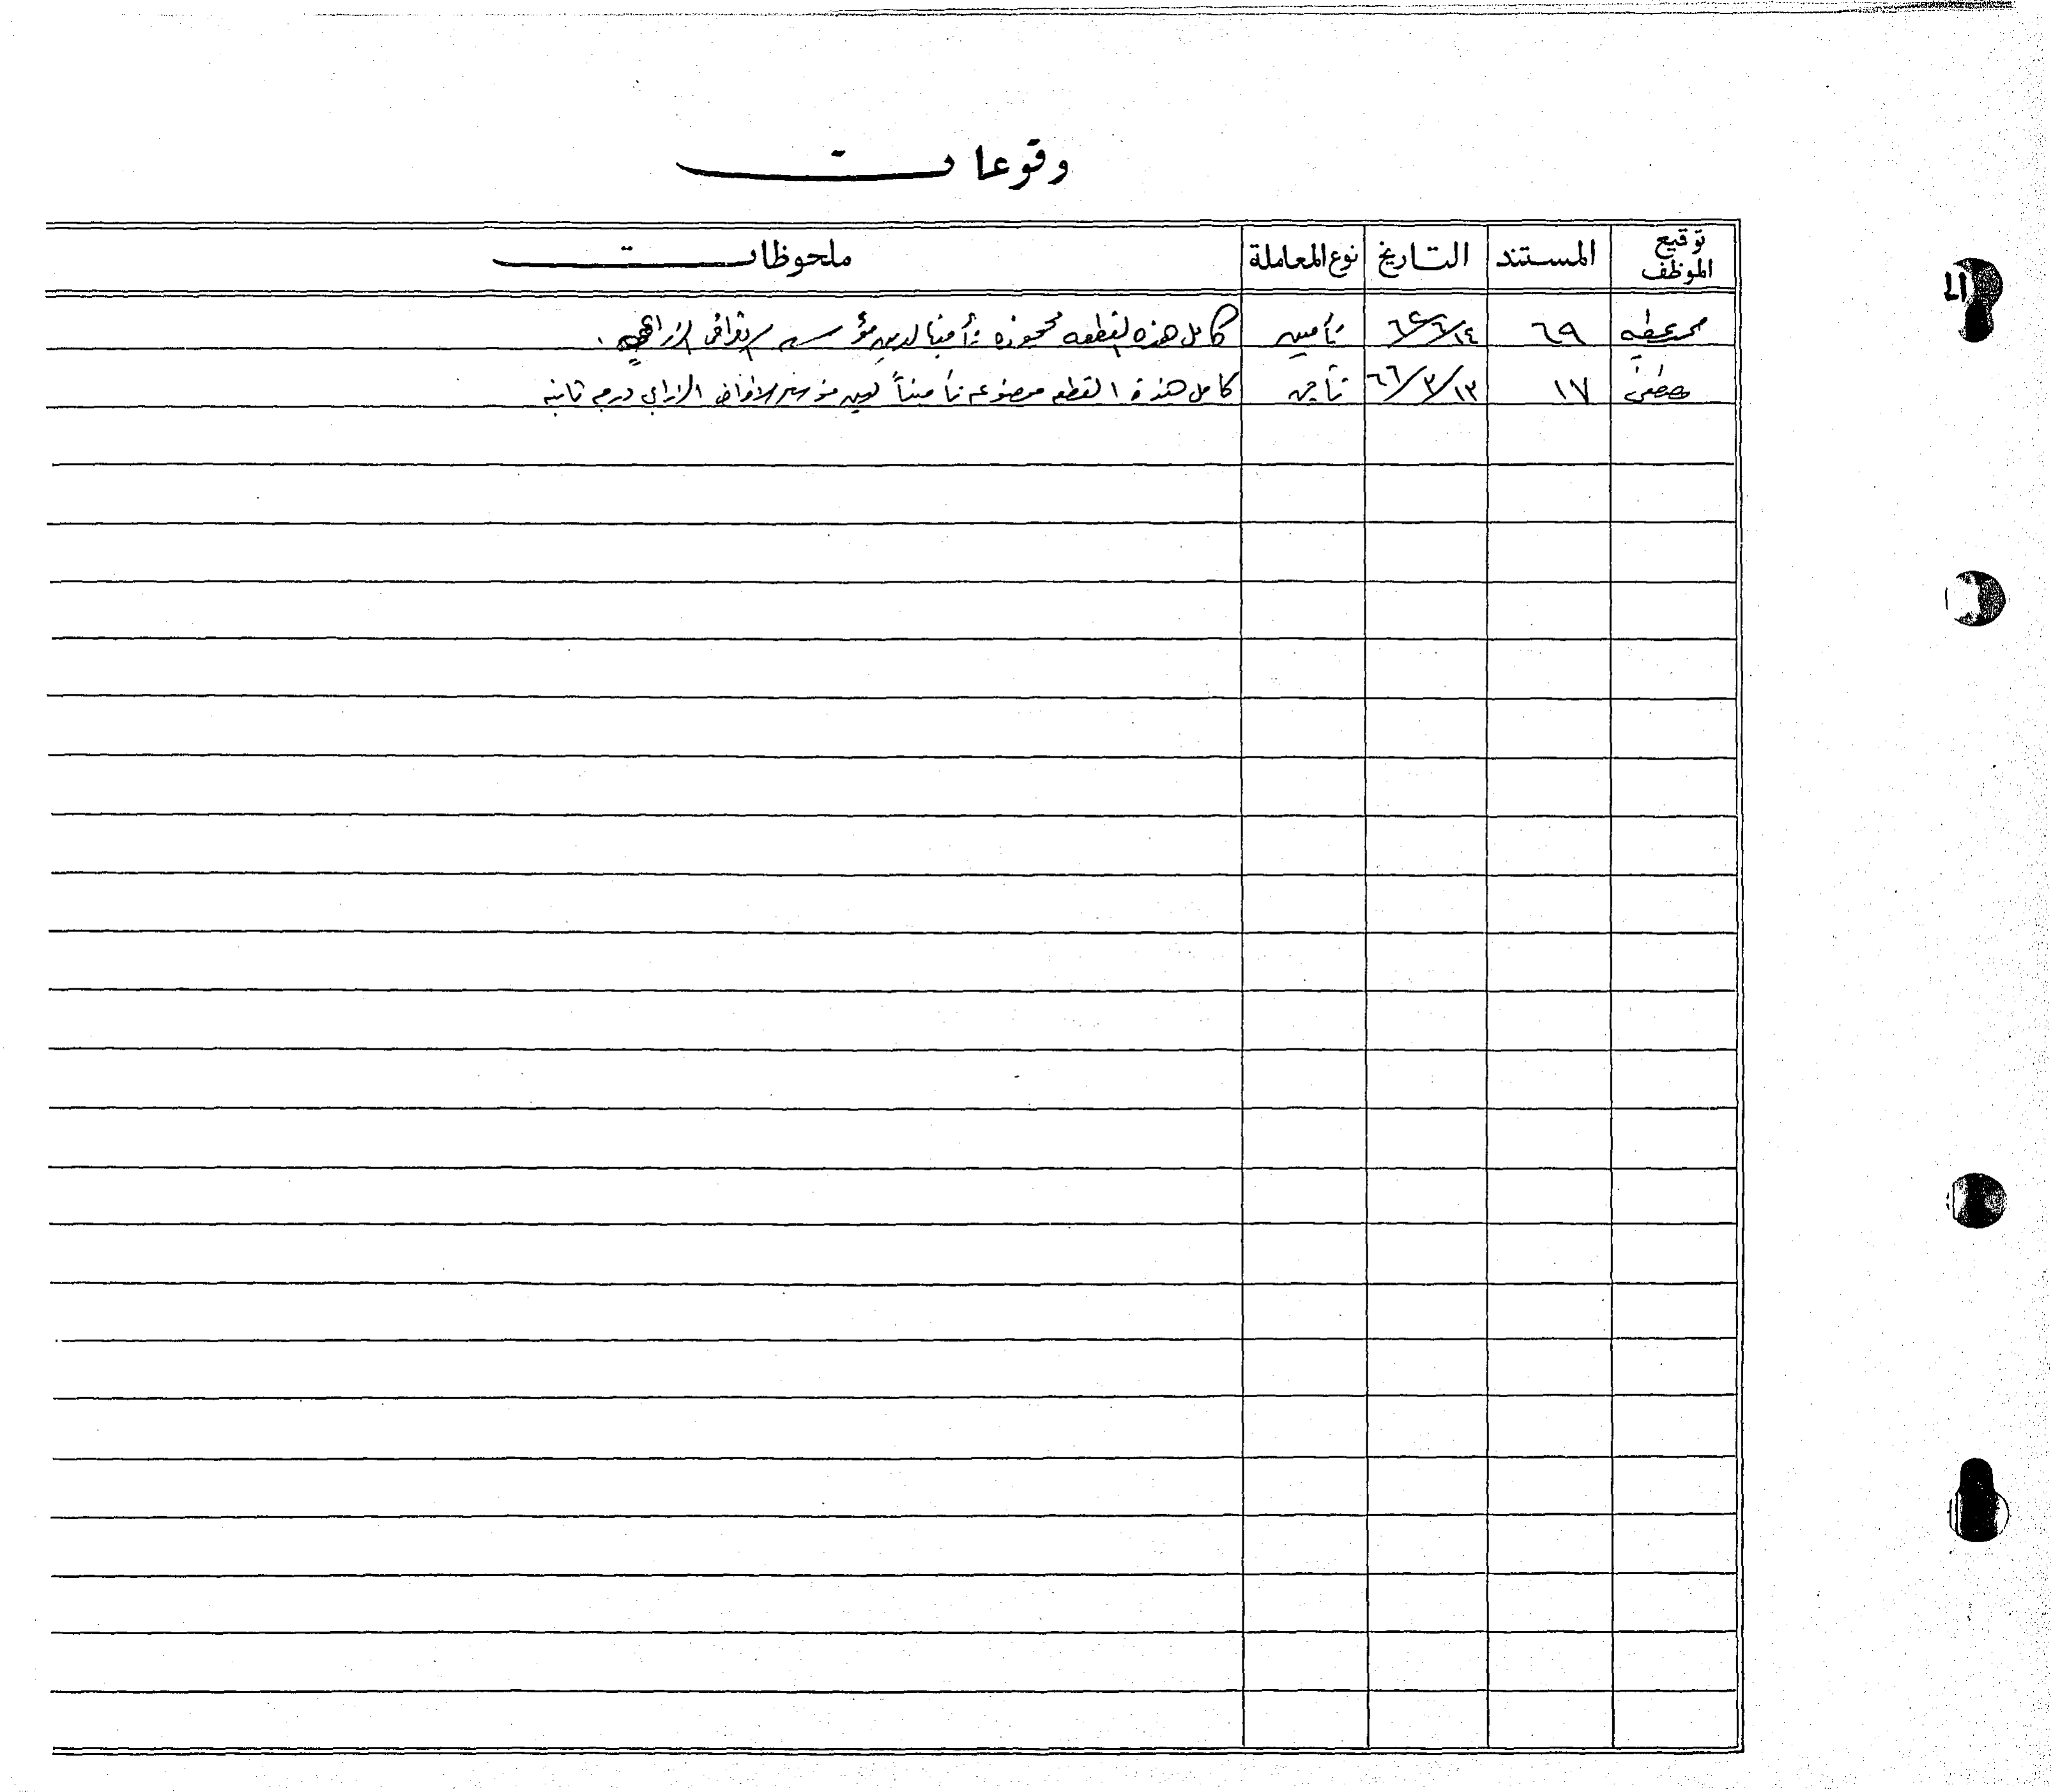 وقوعات
توقيع الموظف المستند التاريخ نوع المعاملة ملحوظات
محمد عطيه ٦٩ ٦٤/٦/١٤ تأمين كامل هذه القطعه محجوزه تأمينا لدين مؤسسة الاقراض الزراعي .
مصطفى ١٧ ٦٦/٣/١٣ تأمين كامل هذه القطعه موضوعه تأميناً لدين مؤسسة الاقراض الزراعي درجه ثانيه